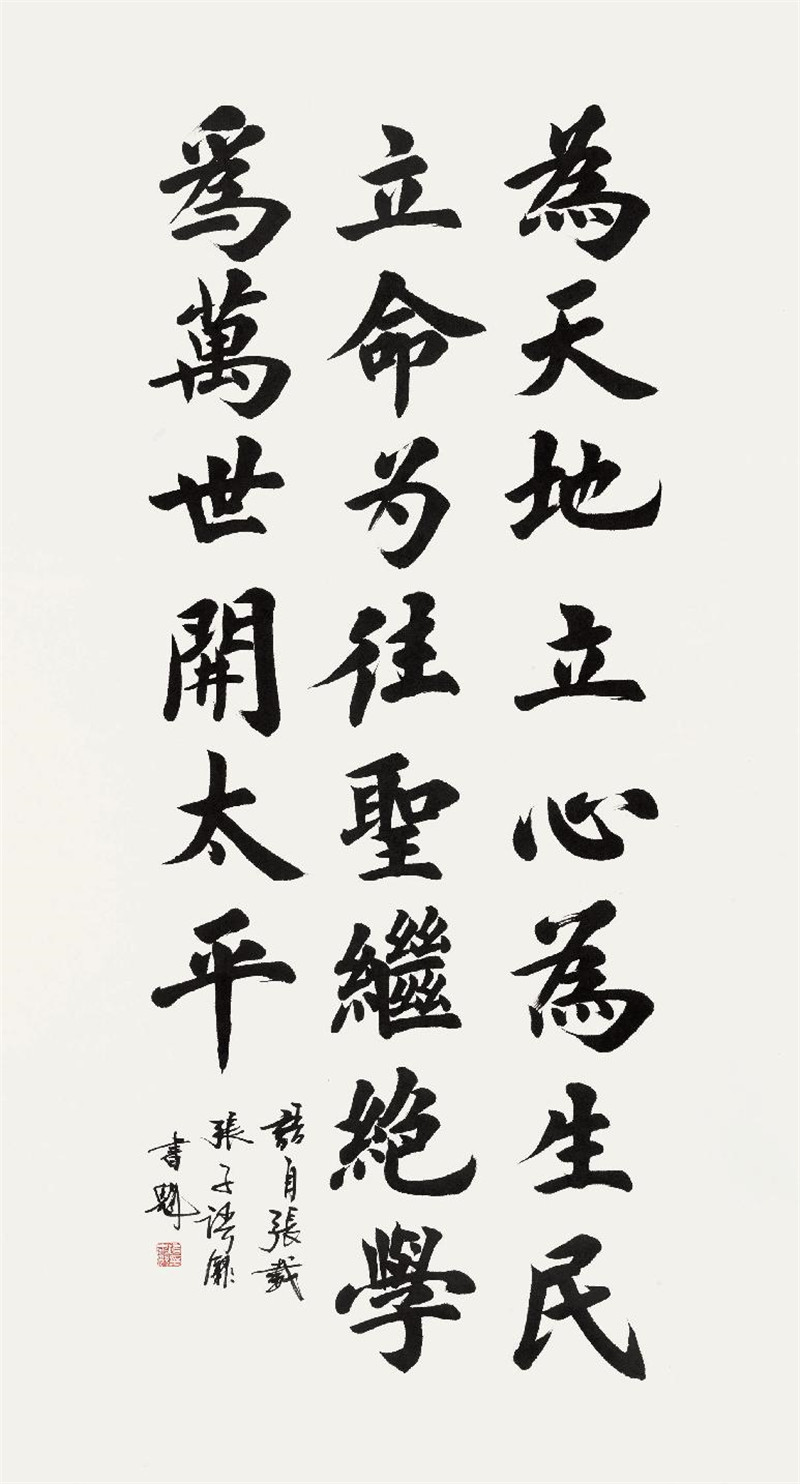 為天地立心為生民
立命为往聖繼絶學
爲萬世開太平
語自張載
張子語錄
書魁